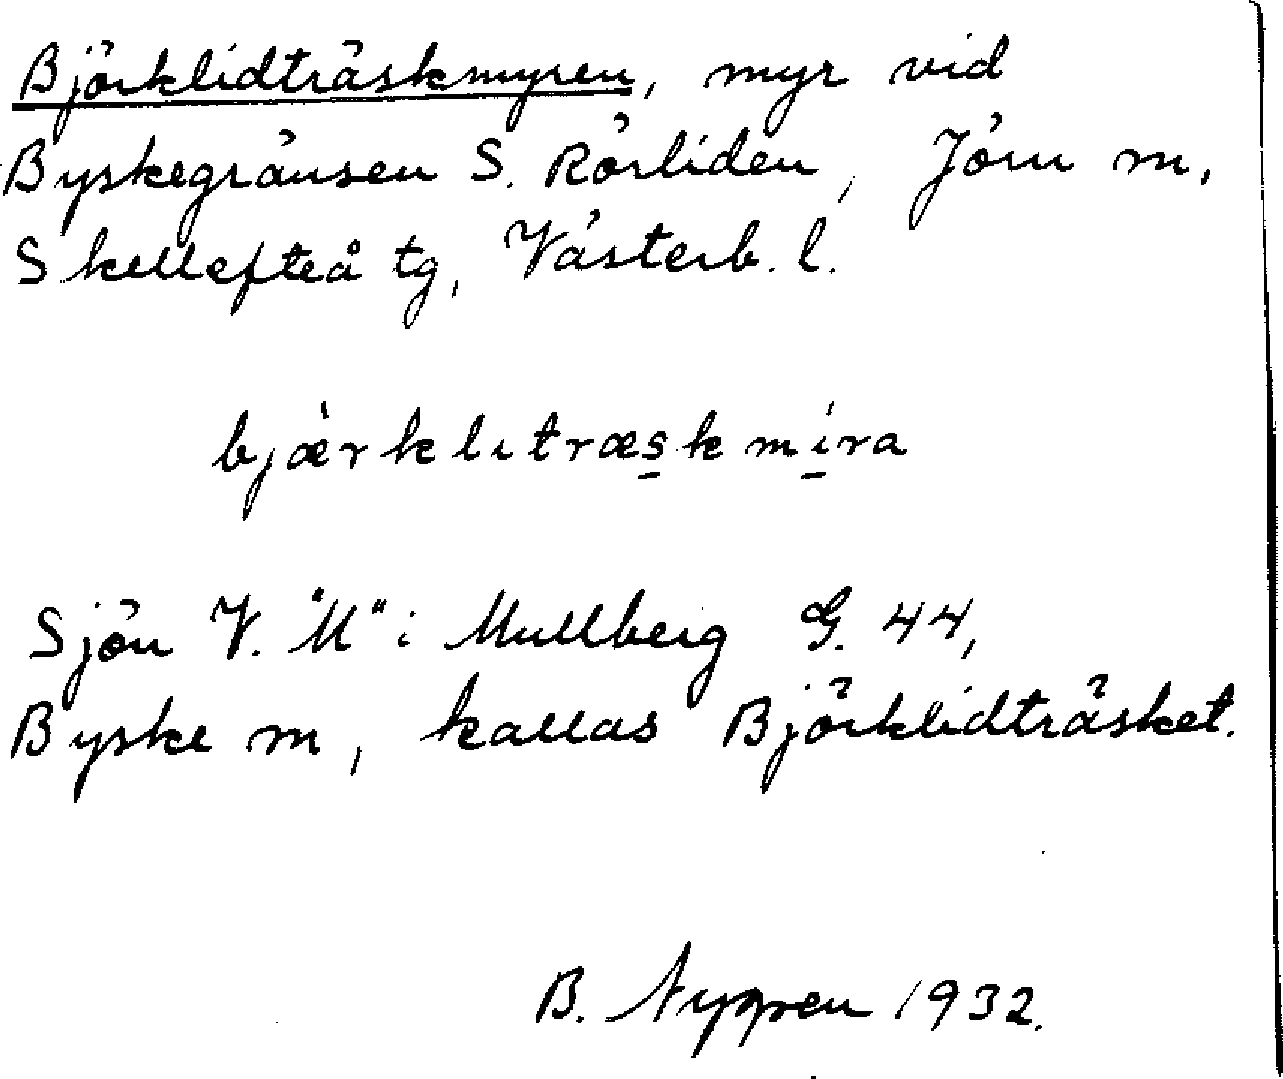 Björklidträskmyren, myr vid
Byskegränsen S. Rörliden, Jörn m,
Skellefteå tg, Västerb. l.
bjæ̀rklıtræs̱kmí̱ra
Sjön V. "M" i Mullberg G. 44,
Byske m, kallas Björklidträsket.
B. Nygren 1932.